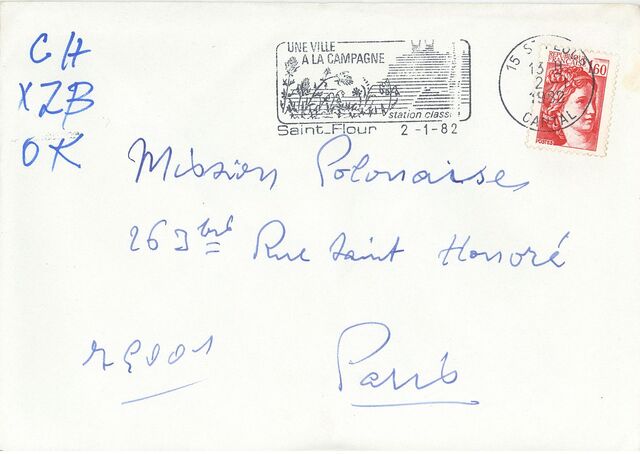 CH
XZB
OK
UNE VILLE
À LA CAMPAGNE
station class
Saint-Flour 2-1-82
15 ST FLOUR
13 H
2 - 1
1982
CANTAL
1,60
POSTES
Mission Polonaise
263 bis Rue Saint Honoré
75001
Paris